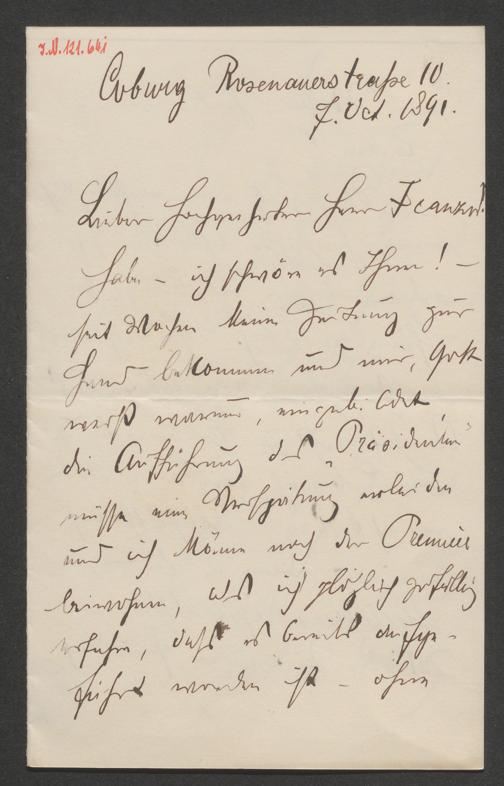 J.N. 121.661
Coburg Rosenauerstraße 10.
7. Oct. 1891.
Lieber hochverehrter Herr Franzos!
Habe – ich schwöre es Ihnen! –
seit Wochen keine Zeitung zur
Hand bekommen und mir, Gott
weiß warum, eingebildet,
die Aufführung des „Präsidenten"
müsse eine Verspätung erleiden
und ich könne noch der Premiere
beiwohnen, als ich plötzlich zufällig
erfahre, daß es bereits aufge-
führt worden ist – ohne